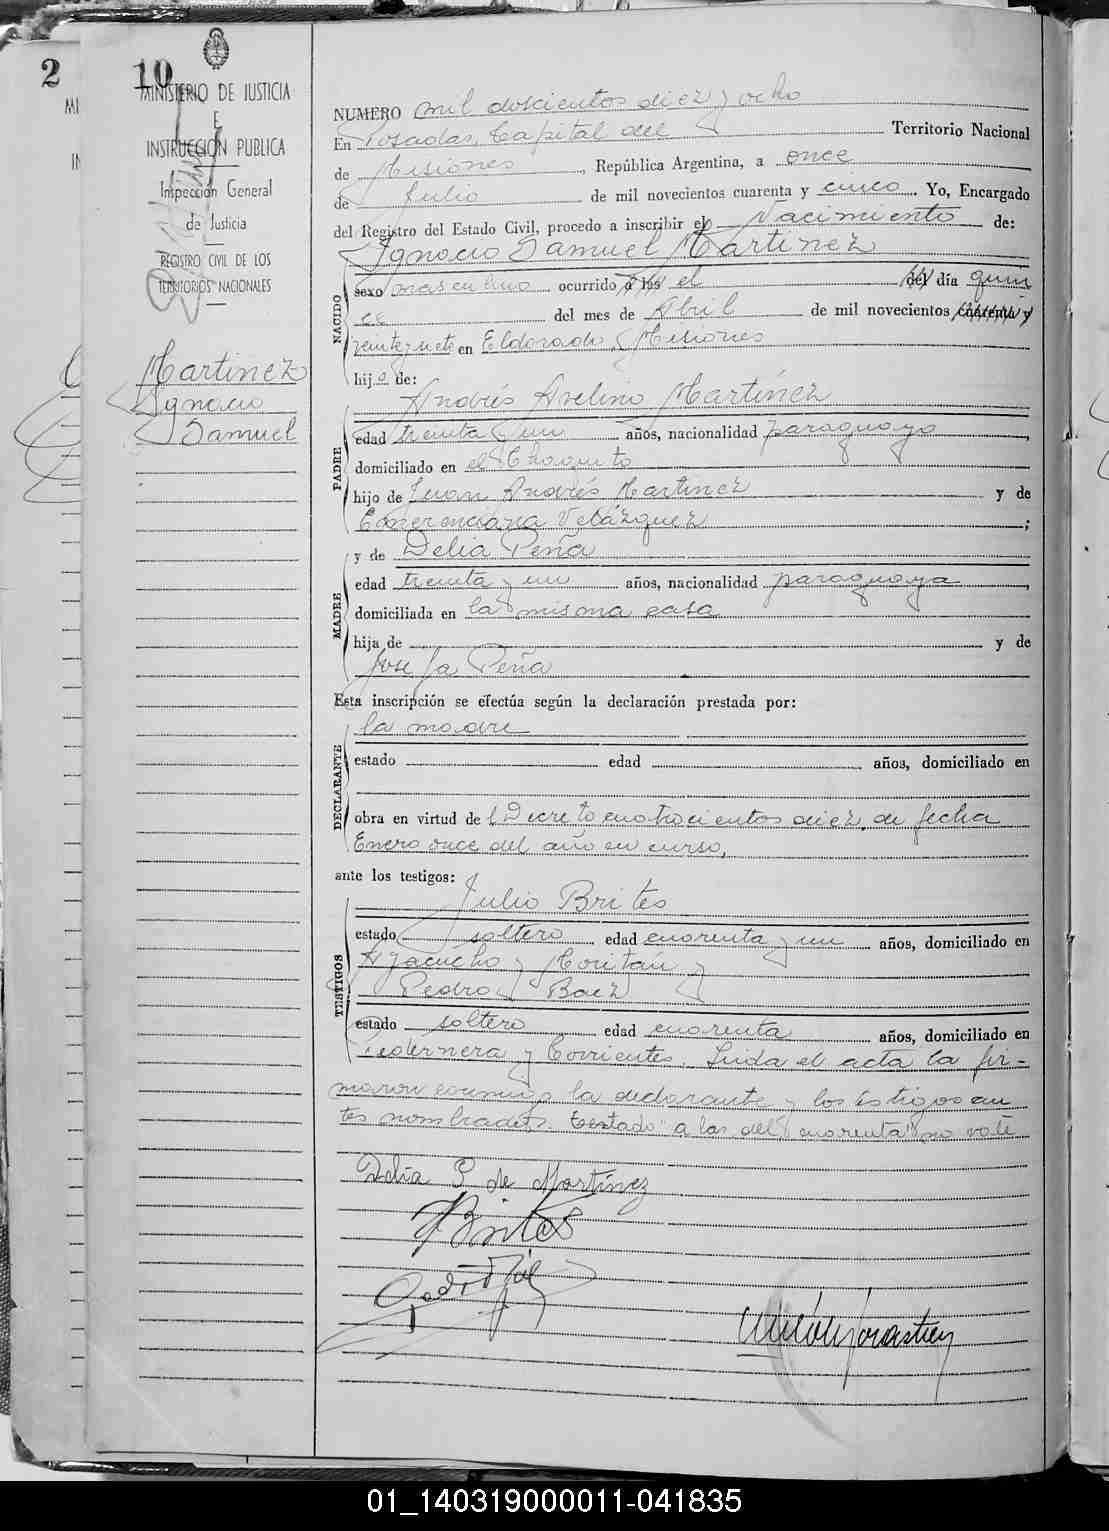 2
10
MINISTERIO DE JUSTICIA
E
INSTRUCCIÓN PUBLICA
Inspección General
de Justicia
REGISTRO CIVIL DE LOS
TERRITORIOS NACIONALES
Martinez
Ignacio
Samuel
NUMERO mil doscientos diez y ocho
En Posadas, Capital del Territorio Nacional
de Misiones, República Argentina, a once
de Julio de mil novecientos cuarenta y cinco. Yo, Encargado
del Registro del Estado Civil, procedo a inscribir el Nacimiento de:
Ignacio Samuel Martinez
NACIDO
sexo masculino ocurrido a las el del día quin
ce del mes de Abril de mil novecientos cuarenta y
veintisiete en Eldorado, Misiones
hijo de:
Andrés Avelino Martínez
PADRE
edad treinta y un años, nacionalidad paraguayo,
domiciliado en el Chaquito
hijo de Juan Andrés Martinez y de
Velázquez;
MADRE
y de Delia Peña
edad treinta y un años, nacionalidad paraguaya,
domiciliada en la misma casa
hija de y de
Josefa Peña
Esta inscripción se efectúa según la declaración prestada por:
la madre
DECLARANTE
estado edad años, domiciliado en
obra en virtud del Decreto cuatrocientos diez, de fecha
Enero once del año en curso,
ante los testigos:
Julio Brites
TESTIGOS
estado soltero edad cuarenta y un años, domiciliado en
Ayacucho y Moritán y
Pedro Baez
estado soltero edad cuarenta años, domiciliado en
Pedernera y Corrientes. Leida el acta la fir-
maron conmigo la declarante y los testigos an
tes nombrados. Testado "a las del cuarenta" no vale
Delia P de Martínez
Brites
01_140319000011-041835